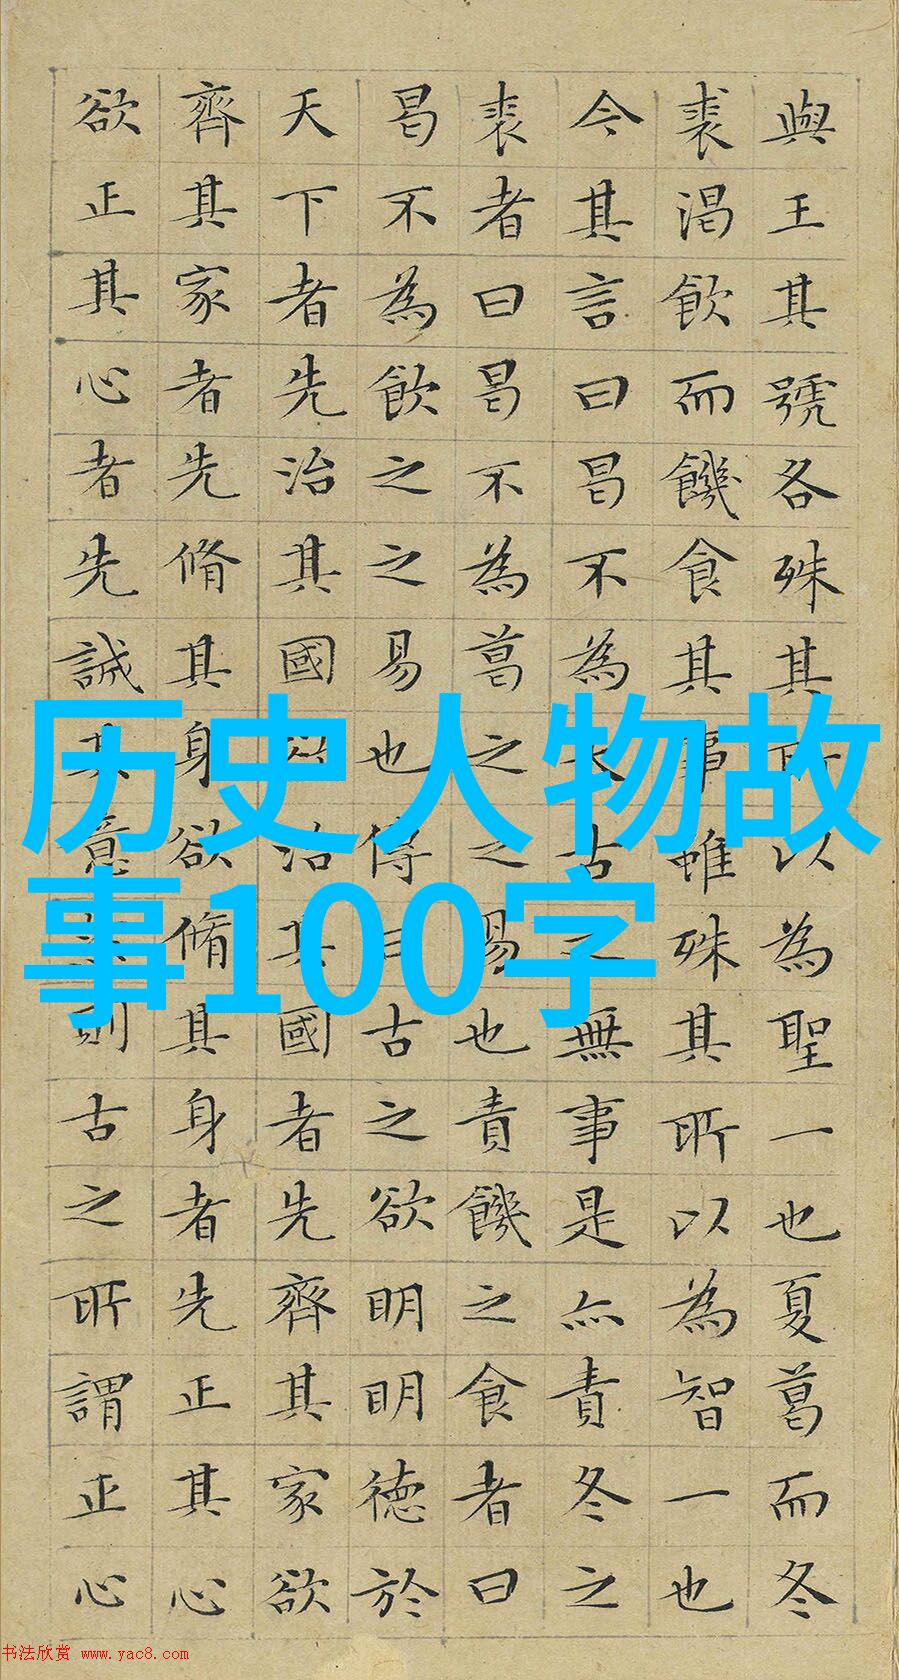 與王其號各殊其所以為聖一也夏葛而冬
裘渴飲而饑食其事帷殊其所以為智一也
今其言曰曷不為太古之無事是亦責冬之
裘者曰曷不為葛之之易也責饑之食者曰
曷不為飲之之易也傳曰古之欲明明德於
天下者先治其國欲治其國者先齊其家欲
齊其家者先脩其身欲脩其身者先正其心
欲正其心者先誠其意然則古之所謂正心
历史人物故
事100字
书法欣赏 www.yac8.com